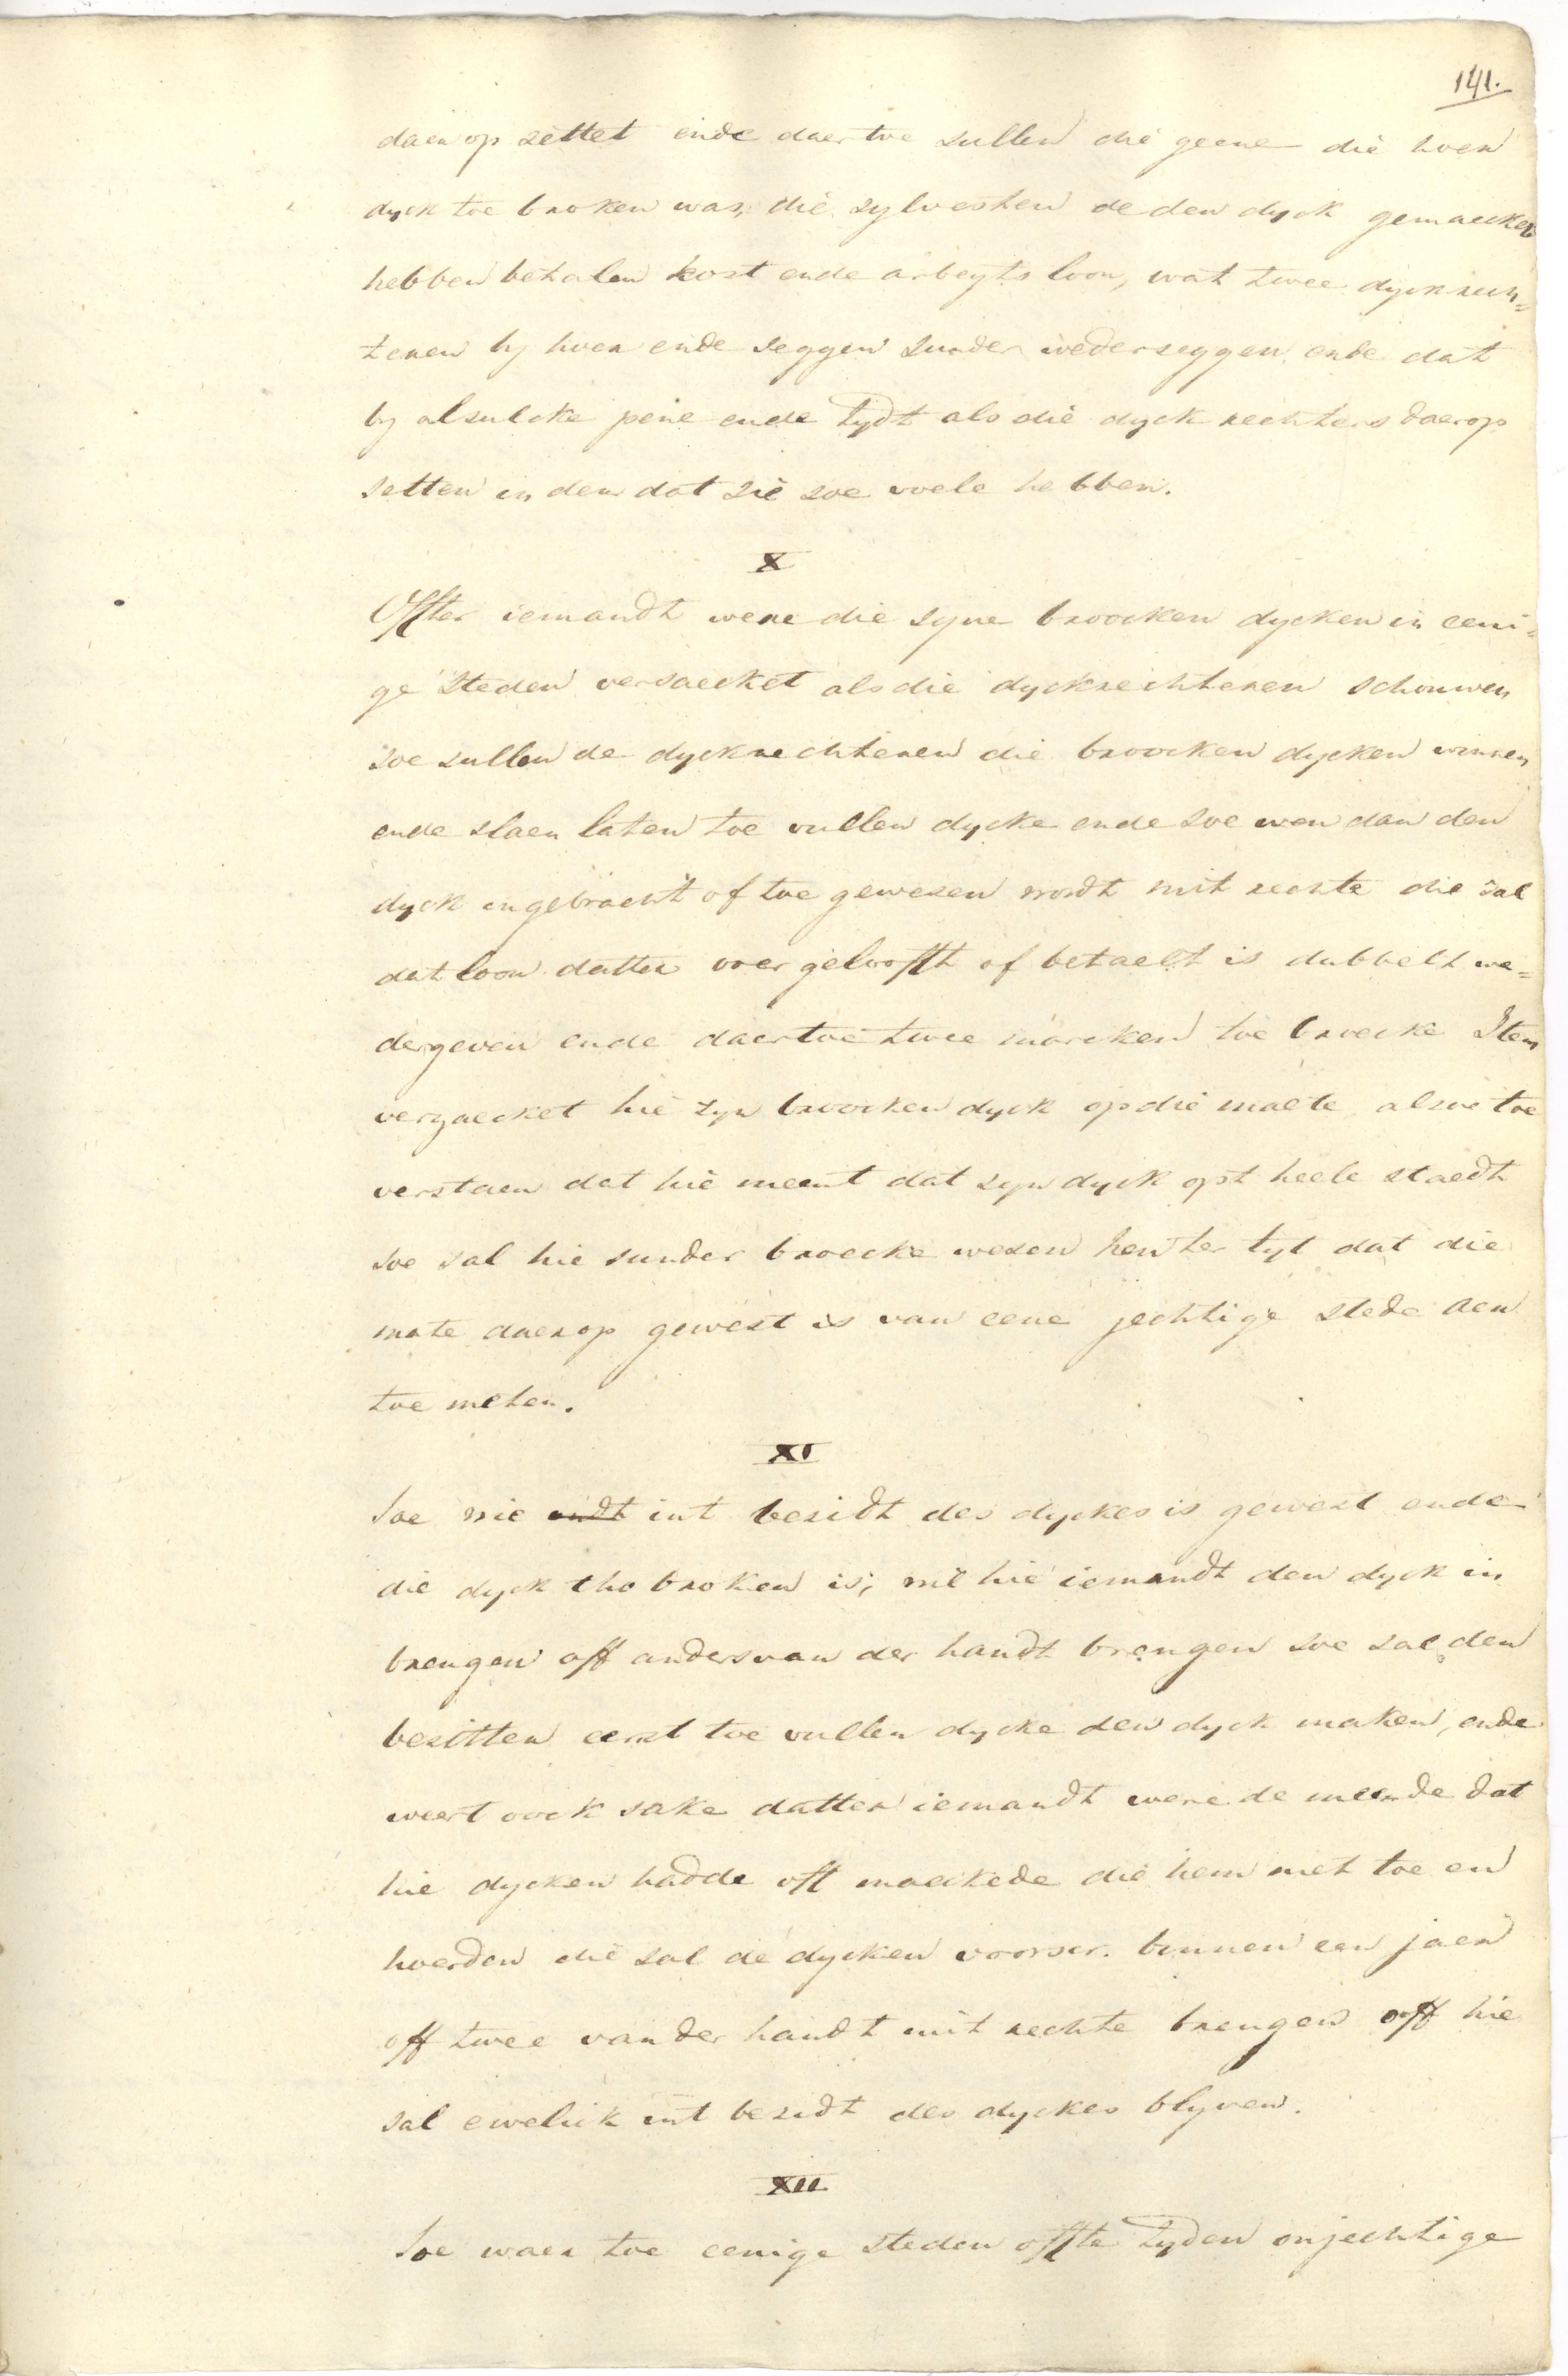 141.
daer op zettet ende daer toe sullen die geene die hoer
dyck toe broken was, die sylvesten de den dyck gemaecket
hebben betalen kost ende arbeyts loon, wat twee dyck rech=
teren by hoer ende seggen sunder wederseggen ende dat
by alsulcke pene ende tydt als die dyck rechters daerop
setten in dem dat sie soe voele hebben.
X
Offter iemandt were die syne broocken dycken in eeni=
ge steden versaecket als die dyckrechteren schouwen
soe sullen de dyckrechteren die broocken dycken winnen
ende slaen laten toe vullen dycke ende soe wen dan den
dyck ingebracht of toe gewesen wordt mit rechte die sal
dat loon datter voer gelooft of betaelt is dubbelt we=
dergeven ende daertoe twee marcken toe broecke Item
verzaecket hie syn broocken dyck op die maete alsoe toe
verstaen dat hie meent dat syn dyck opt heele staedt
soe sal hie sunder broecke wesen hen ter tyt dat die
mate daerop gewest is van eene jechtige stede aen
toe meten.
XI
Soe wie int besidt des dyckes is gewest ende
die dyck tho broken is, wil hie iemandt den dyck in
brengen off anders van der handt brengen soe sal den
besitten eerst toe vullen dycke den dyck maken, ende
weert oock sake datter iemandt were de meende dat
hie dycken hadde oft maeckede die hem niet toe en
hoerden die sal de dycken voorscr. binnen een jaer
off twee van der handt mit rechte brengen off hie
sal ewelick int besidt des dyckes blyven.
XII
Soe waer toe eenige steden offte tyden onjechtige